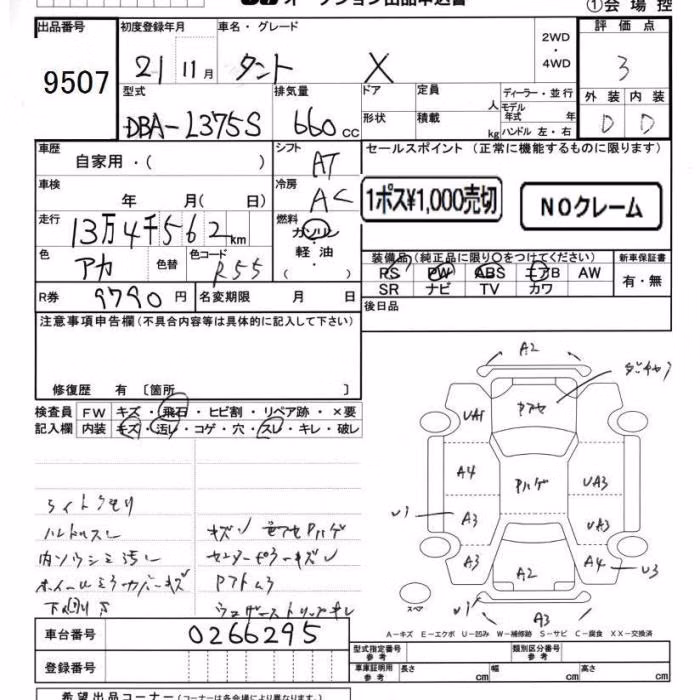 オークション出品申込書
①会場控
出品番号
9507
初度登録年月
21 11月
車名・グレード
タント X
2WD・4WD
評価点
3
型式
DBA-L375S
排気量
660 cc
ドア
形状
定員 人
積載 kg
ディーラー・並行
モデル年式 年
ハンドル 左・右
外装 内装
D D
車歴
自家用・( )
シフト
AT
車検
年 月( 日)
冷房
AC
走行
13万4千562km
燃料
ガソリン
軽油
( ・ )
色
アカ
色替
色コード
R55
R券
9790円
名変期限 月 日
セールスポイント (正常に機能するものに限ります)
1ポス¥1,000売切
NOクレーム
装備品(純正品に限り○をつけてください)
PS PW ABS エアB AW
SR ナビ TV カワ
新車保証書
有・無
後日品
注意事項申告欄(不具合内容等は具体的に記入して下さい)
修復歴 有 〔箇所 〕
検査員記入欄
FW キズ・飛石・ヒビ割・リペア跡・×要
内装 キズ・汚レ・コゲ・穴・スレ・キレ・破レ
ライトクモリ
ハンドルスレ
内ソウシミ汚レ
下回りサ
車台番号
0266295
登録番号
A2
UA1
A4
A3
A3
UA3
UA3
A4
A2
A3
U3
スペア
A-キズ E-エクボ U-凹み W-補修跡 S-サビ C-腐食 XX-交換済
型式指定番号 参考
類別区分番号 参考
車庫証明用 参考
長さ cm
幅 cm
高さ cm
希望出品コーナー(コーナーは各会場により異なります)